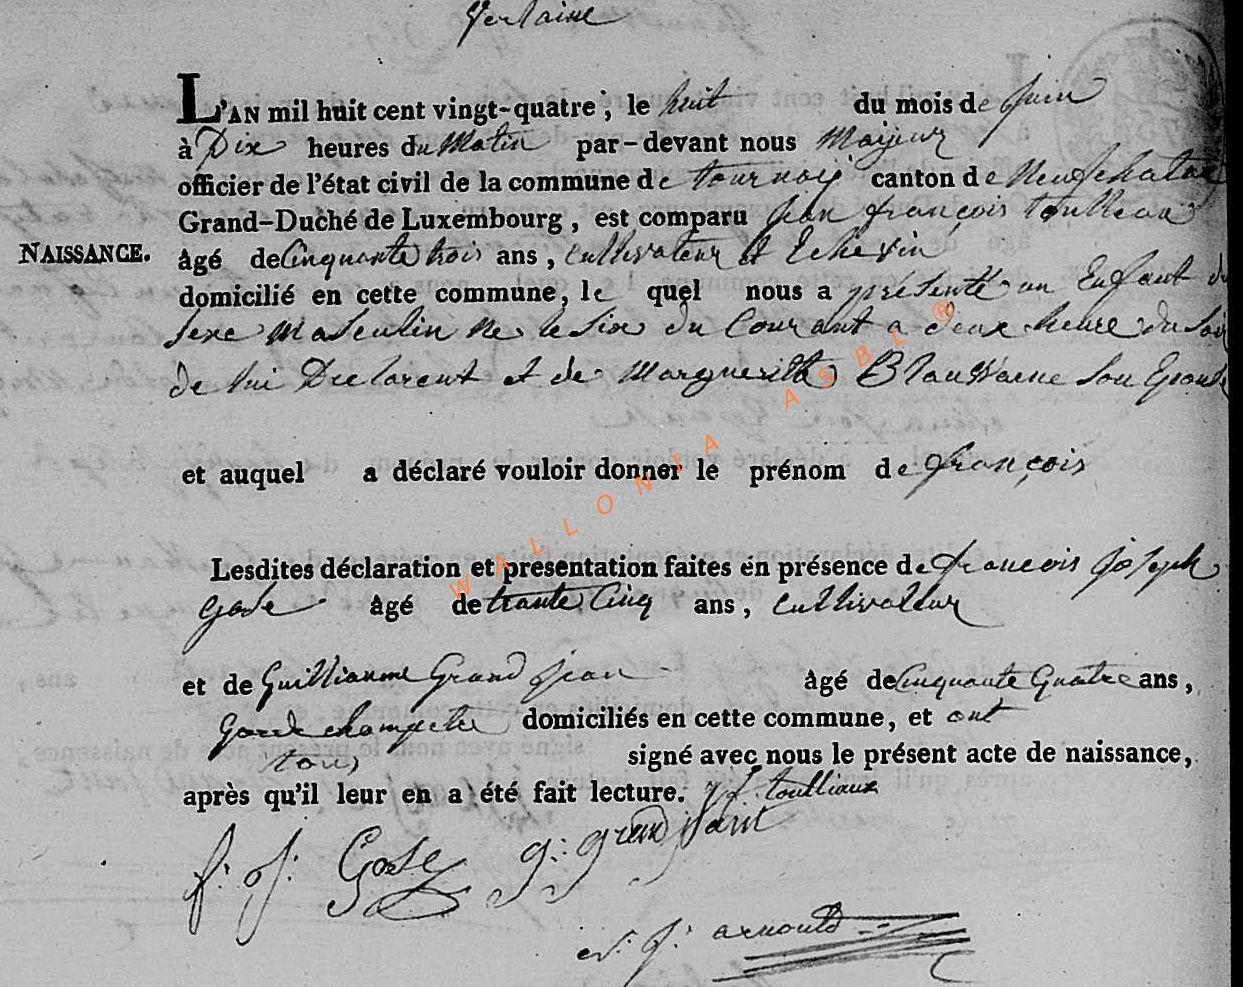 Verlaine
L'AN mil huit cent vingt-quatre, le huit du mois de Juin
à Dix heures du Matin par-devant nous Majeur
officier de l'état civil de la commune de tournay canton de Neufchateau
Grand-Duché de Luxembourg, est comparu Jean françois toulleaux
NAISSANCE.
âgé de Cinquante trois ans, Cultivateur et Echevin
domicilié en cette commune, le quel nous a présenté un Enfant du
Sexe Masculin Né le Six du Courant a deux heure du Soir
de lui Declarent et de Marguerite Son Epouse
et auquel a déclaré vouloir donner le prénom de françois
Lesdites déclaration et presentation faites en présence de francois Joseph
Gose âgé de trante Cinq ans, Cultivateur
et de Guilliaume Grand Jean âgé de Cinquante Quatre ans,
Garde champetre domiciliés en cette commune, et ont
tous signé avec nous le présent acte de naissance,
après qu'il leur en a été fait lecture. J f toulliaux
f: J: Gose g: grand jean
J: arnould
WALLONIA ASBL ®